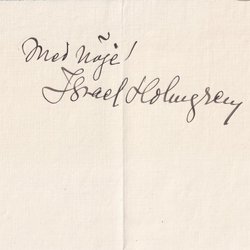 Med nöje!
Israel Holmgren